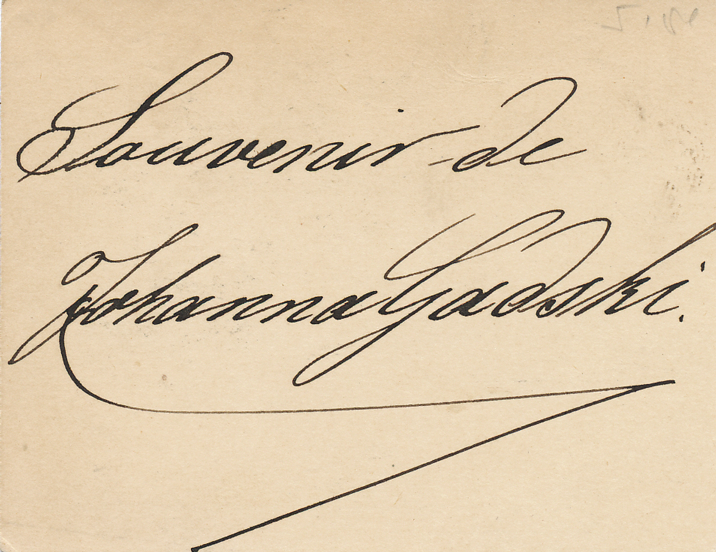 Souvenir de
Johanna Gadski.